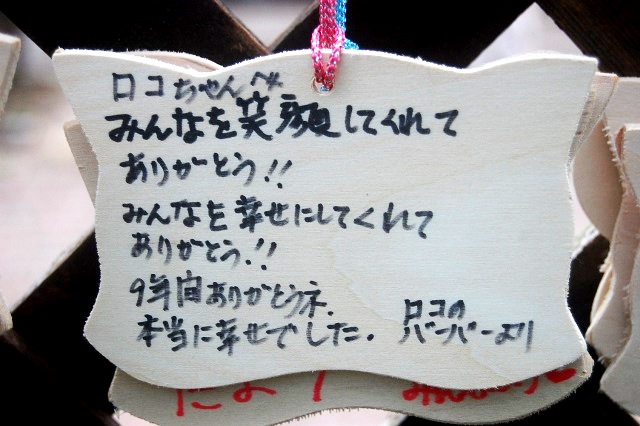 ロコちゃんへ
みんなを笑顔してくれて
ありがとう!!
みんなを幸せにしてくれて
ありがとう!!
9年間ありがとうネ.
本当に幸せでした.
ロコの
バーバーより